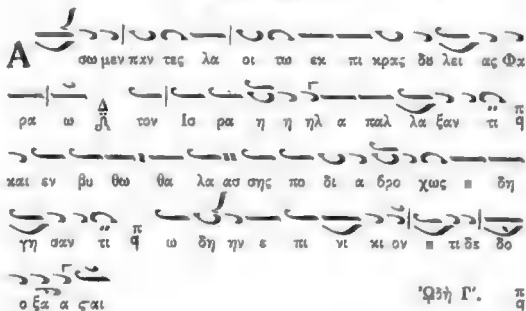 Α σω μεν παν τες λα οι τω εκ πι κρας δου λει ας Φα
ρα ω Δ τον Ισ ρα η η ηλ α παλ λα ξαν τι π q
και εν βυ θω θα λα ασ σης πο δι α βρο χως η δη
γη σαν τι π q ω δη ην ε πι νι κι ον η τι δε δο
ο ξα α σαι
ᾨδὴ Γʹ. π q